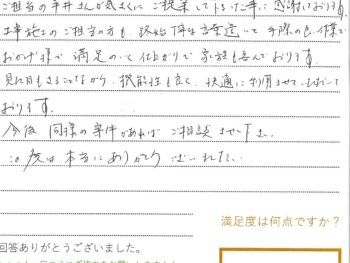 ご担当の平井さんが気さくにご提案して下さった事に感謝しております。
工事施工のご担当の方も、終始丁寧な言葉遣いで手際の良い作業で
おかげ様で満足のいく仕上がりで家族も喜んでおります。
見た目もさることながら、機能性も良く、快適に利用させていただいて
おります。
今後同様の案件があればご相談させて下さい。
この度は本当にありがとうございました。
満足度は何点ですか?
回答ありがとうございました。